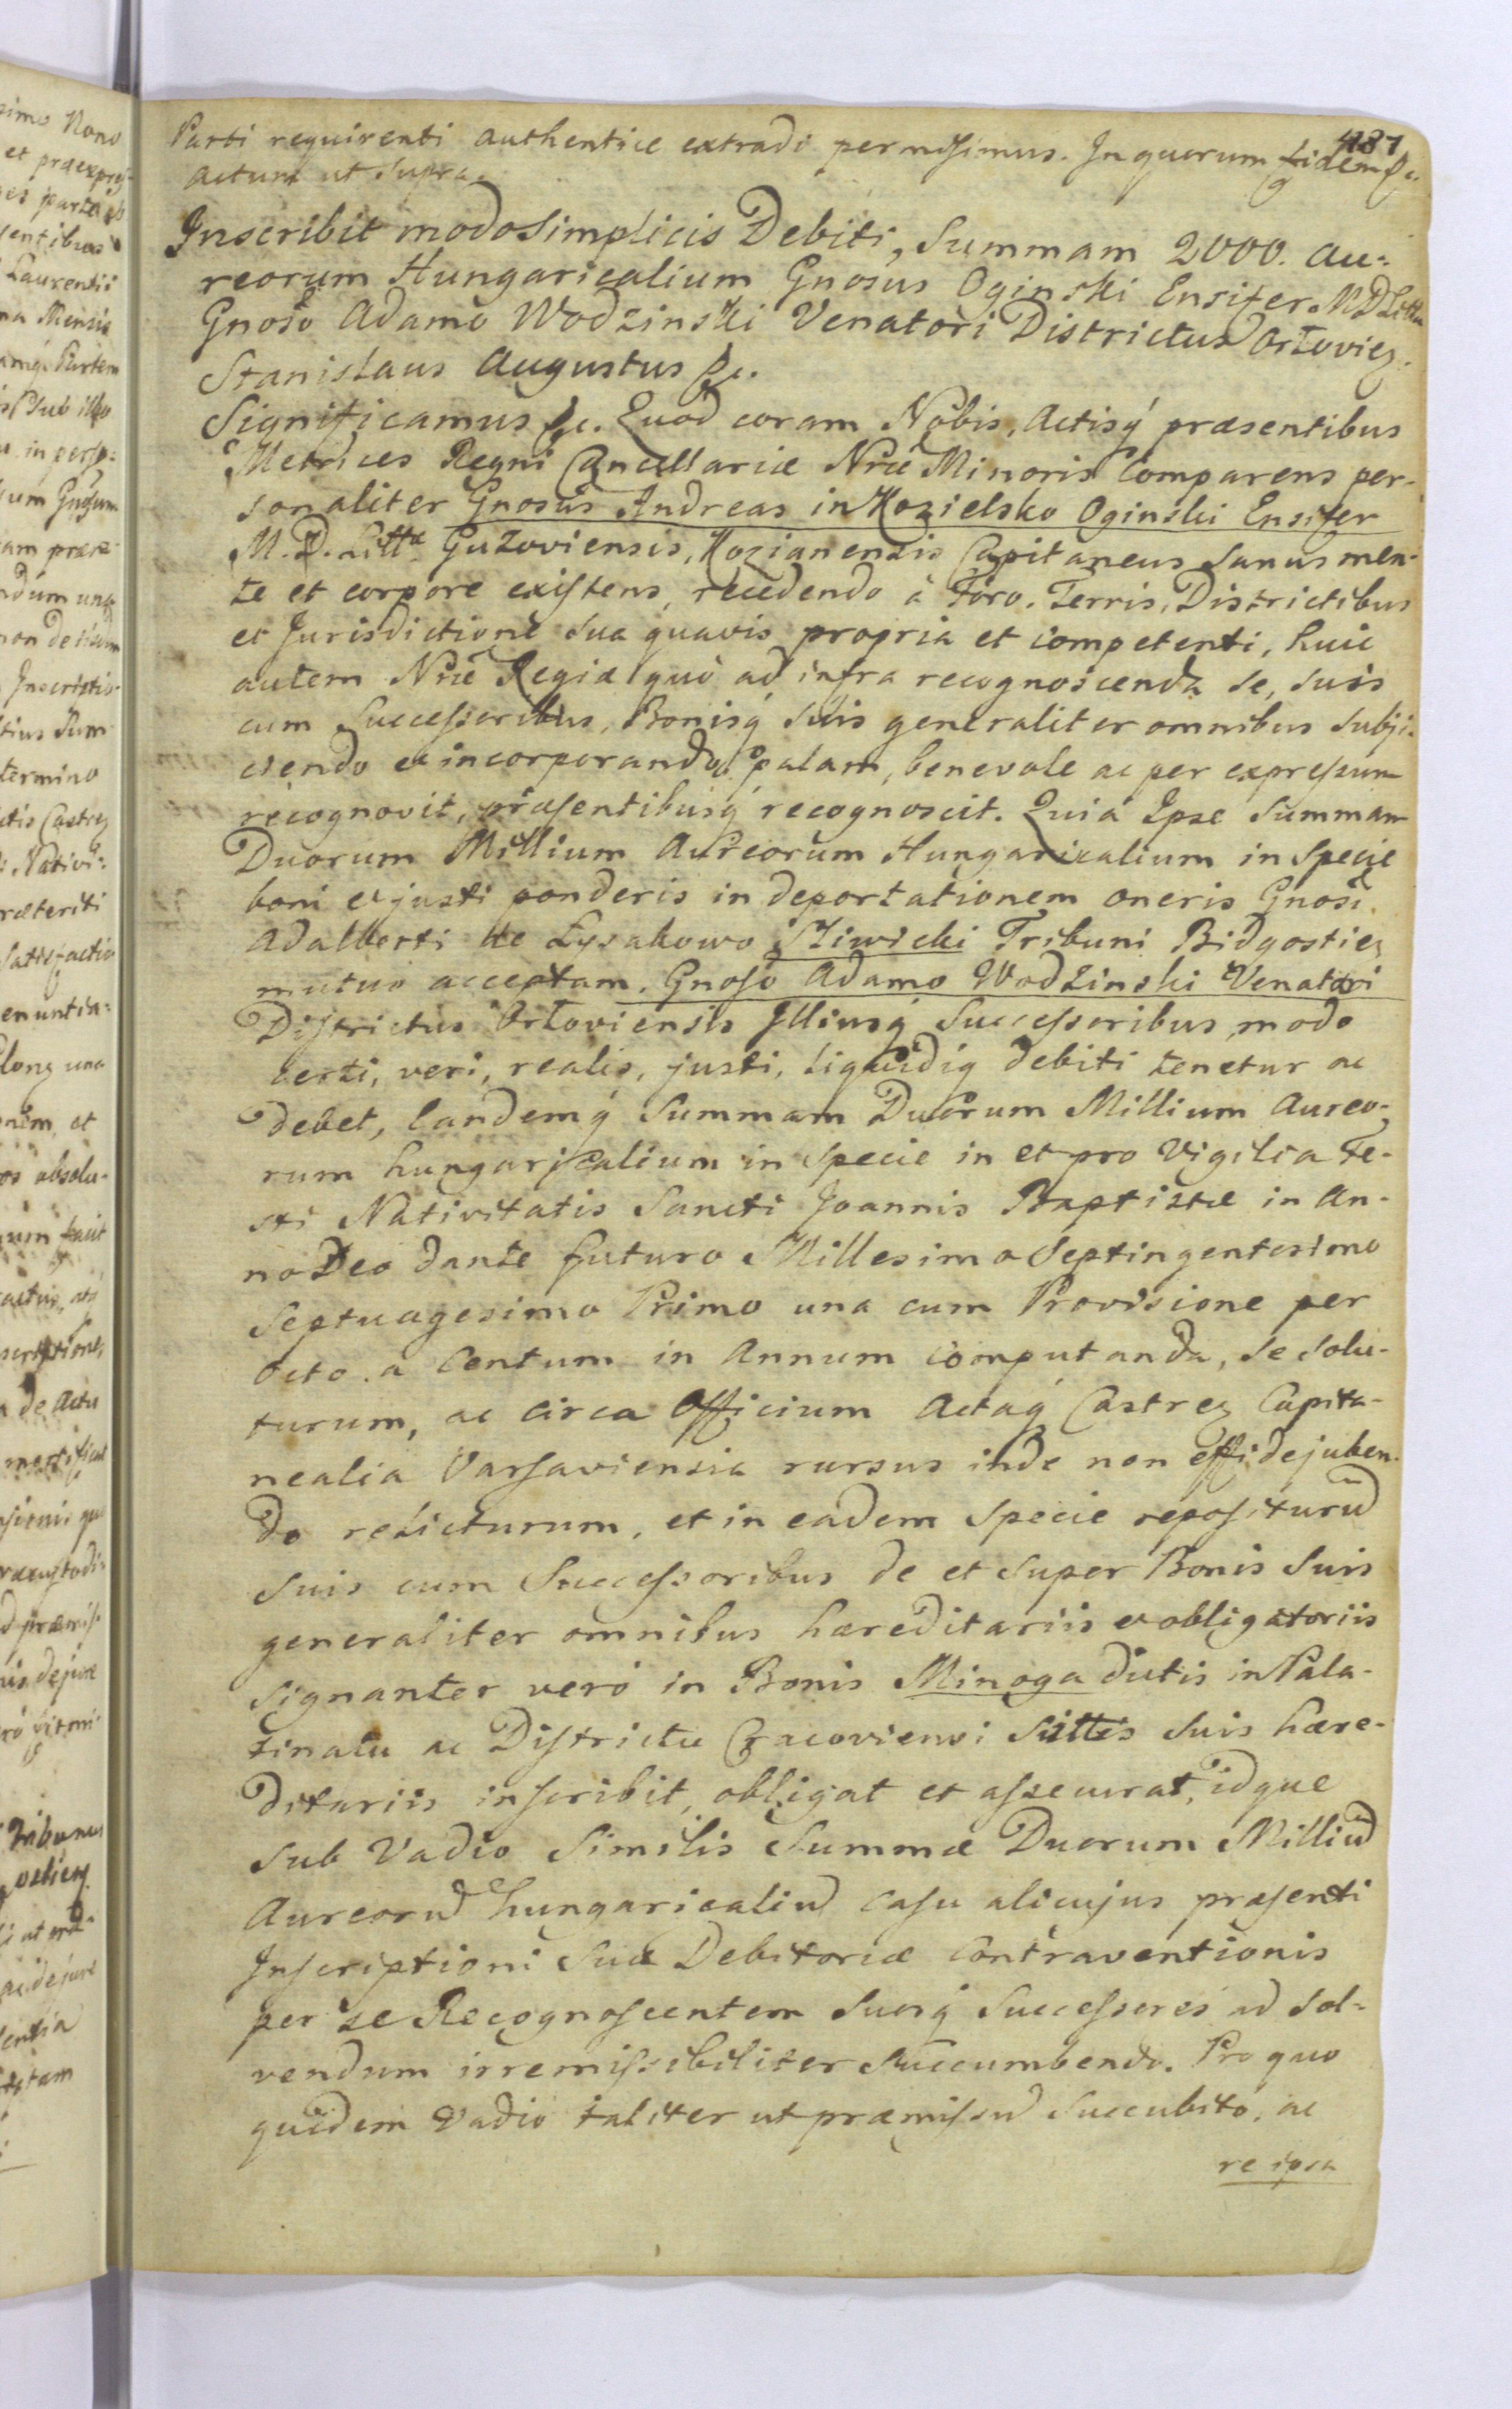 487
Parti requirenti authentice extradi permisimus. In quorum fidem &c.
Actum ut supra.
Inscribit modo Simplicis Debiti, Summam 2000. Au-
reorum Hungaricalium Gnosus Oginski Ensifer M D Litt
Gnoso Adamo Wodzinski Venatori Districtus Orłovien.
Stanislaus Augustus &c.
Significamus &c. Quod coram Nobis, Actisq́ præsentibus
Metrices Regni Cancellariæ Nræ Minoris Comparens per-
sonaliter Gnosus Andreas in Kozielsko Oginski Ensifer
M. D. Littæ Guzoviensis, Kozianensis Capitaneus Sanus men-
te et corpore existens, recedendo à Foro, Terris, Districtibus
et Jurisdictione Sua quavis propria et competenti, huic
autem Nræ Regiæ quò ad infra recognoscenda se, suis
cum Successoribus, Bonisq́ suis generaliter omnibus subji-
ciendo et incorporando, palam, benevole ac per expressum
recognovit, præsentibusq́ recognoscit. Quiá Ipse Summam
Duorum Millium Aureorum Hungaricalium in Specie
boni et justi ponderis in deportationem oneris Gnosi
Adalberti de Łysakowo Sliwicki Tribuni Bidgostien
mutuo acceptam, Gnoso Adamo Wodzinski Venatori
Districtus Orłoviensis Illiusq́ Successoribus modo
certi, veri, realis, justi, liquidiq́ debiti tenetur ac
debet, Eandemq́ Summam Duorum Millium Aureo-
rum hungaricalium in Specie in et pro Vigilia Fe-
sti Nativitatis Sancti Joannis Baptistæ in An-
no Deo dante futuro Millesimo Septingentesimo
Septuagesimo Primo una cum Provisione per
Octo a Centum in Annum computanda, se solu-
turum, ac circa Officium Actaq́ Castren Capita-
nealia Varsaviensia rursus inde non effidejuben-
do relicturum, et in eadem Specie repositurū
Suis cum Successoribus de et super Bonis Suis
generaliter omnibus hæreditariis et obligatoriis
signanter verò in Bonis Minoga dictis in Pala-
tinatu ac Districtu Cracoviensi Sittis suis hære-
ditariis inscribit, obligat et assecurat, idque
sub Vadio Similis Summæ Duorum Milliū
Aureorū hungaricaliū casu alicujus præsenti
Inscriptioni Suæ Debitoriæ Contraventionis
per se Recognoscentem Suosq́ Successores ad sol-
vendum irremissibiliter succumbendo. Pro quo
quidem Vadio taliter ut præmissū Succubito, ac
re ipsa